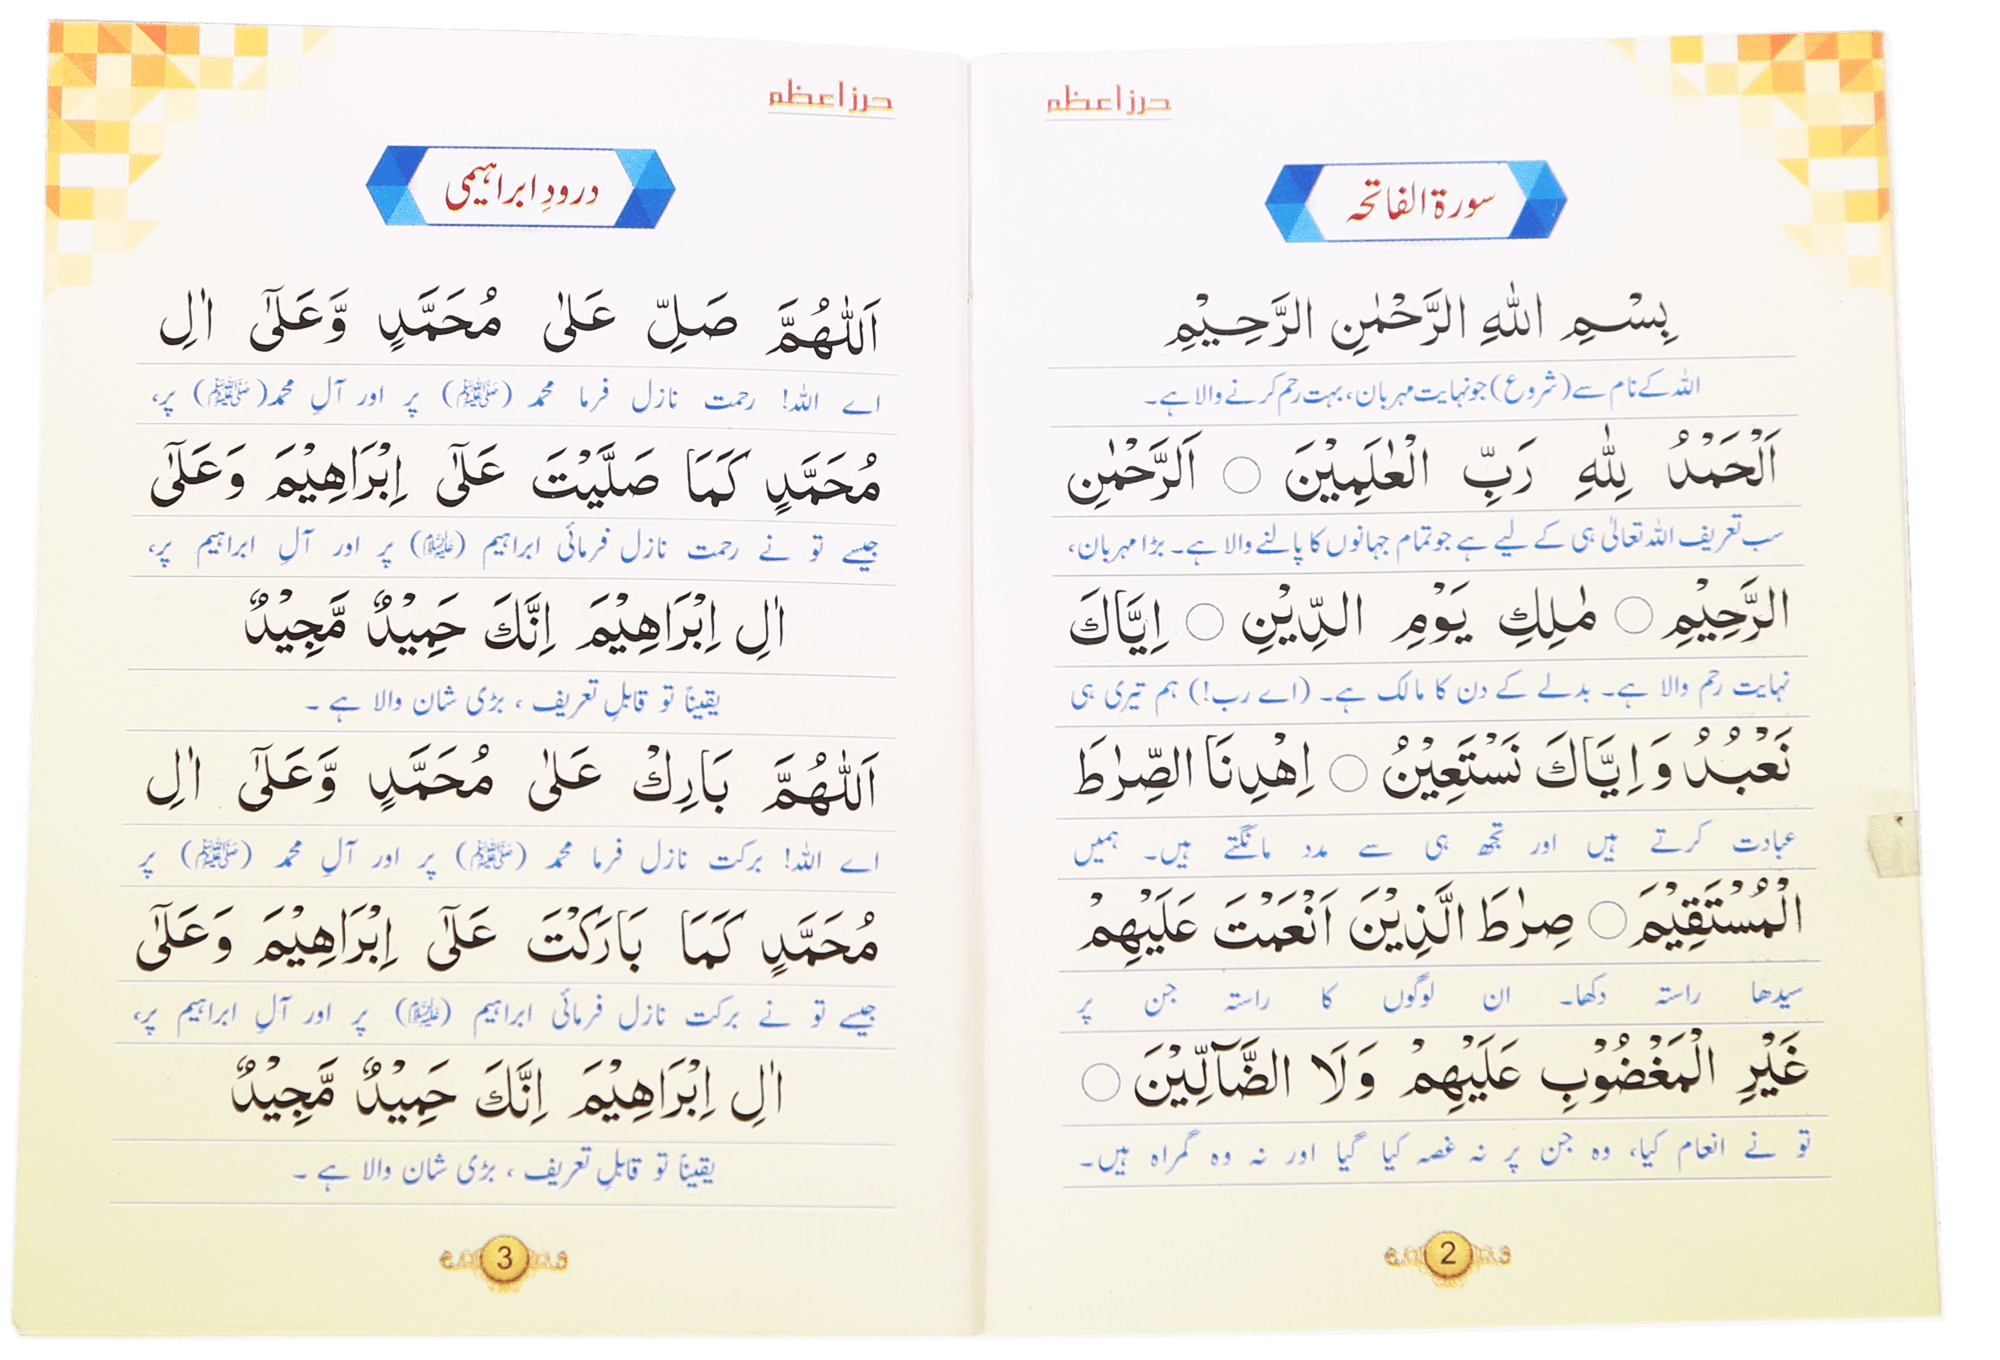 حرز اعظم
سورۃ الفاتحہ
بِسْمِ اللهِ الرَّحْمٰنِ الرَّحِيْمِ
اللہ کے نام سے (شروع) جو نہایت مہربان، بہت رحم کرنے والا ہے۔
اَلْحَمْدُ لِلّٰهِ رَبِّ الْعٰلَمِيْنَ ○ اَلرَّحْمٰنِ
سب تعریف اللہ تعالیٰ ہی کے لیے ہے جو تمام جہانوں کا پالنے والا ہے۔ بڑا مہربان،
الرَّحِيْمِ ○ مٰلِكِ يَوْمِ الدِّيْنِ ○ اِيَّاكَ
نہایت رحم والا ہے۔ بدلے کے دن کا مالک ہے۔ (اے رب!) ہم تیری ہی
نَعْبُدُ وَاِيَّاكَ نَسْتَعِيْنُ ○ اِهْدِنَا الصِّرٰطَ
عبادت کرتے ہیں اور تجھ ہی سے مدد مانگتے ہیں۔ ہمیں
الْمُسْتَقِيْمَ ○ صِرٰطَ الَّذِيْنَ اَنْعَمْتَ عَلَيْهِمْ
سیدھا راستہ دکھا۔ ان لوگوں کا راستہ جن پر
غَيْرِ الْمَغْضُوْبِ عَلَيْهِمْ وَلَا الضَّآلِّيْنَ ○
تو نے انعام کیا، وہ جن پر نہ غصہ کیا گیا اور نہ وہ گمراہ ہیں۔
2
حرز اعظم
درودِ ابراہیمی
اَللّٰهُمَّ صَلِّ عَلٰى مُحَمَّدٍ وَّعَلٰٓى اٰلِ
اے اللہ! رحمت نازل فرما محمد (ﷺ) پر اور آلِ محمد (ﷺ) پر،
مُحَمَّدٍ كَمَا صَلَّيْتَ عَلٰٓى اِبْرَاهِيْمَ وَعَلٰٓى
جیسے تو نے رحمت نازل فرمائی ابراہیم (علیہ السلام) پر اور آلِ ابراہیم پر،
اٰلِ اِبْرَاهِيْمَ اِنَّكَ حَمِيْدٌ مَّجِيْدٌ
یقیناً تو قابلِ تعریف ، بڑی شان والا ہے ۔
اَللّٰهُمَّ بَارِكْ عَلٰى مُحَمَّدٍ وَّعَلٰٓى اٰلِ
اے اللہ! برکت نازل فرما محمد (ﷺ) پر اور آلِ محمد (ﷺ) پر
مُحَمَّدٍ كَمَا بَارَكْتَ عَلٰٓى اِبْرَاهِيْمَ وَعَلٰٓى
جیسے تو نے برکت نازل فرمائی ابراہیم (علیہ السلام) پر اور آلِ ابراہیم پر،
اٰلِ اِبْرَاهِيْمَ اِنَّكَ حَمِيْدٌ مَّجِيْدٌ
یقیناً تو قابلِ تعریف ، بڑی شان والا ہے ۔
3